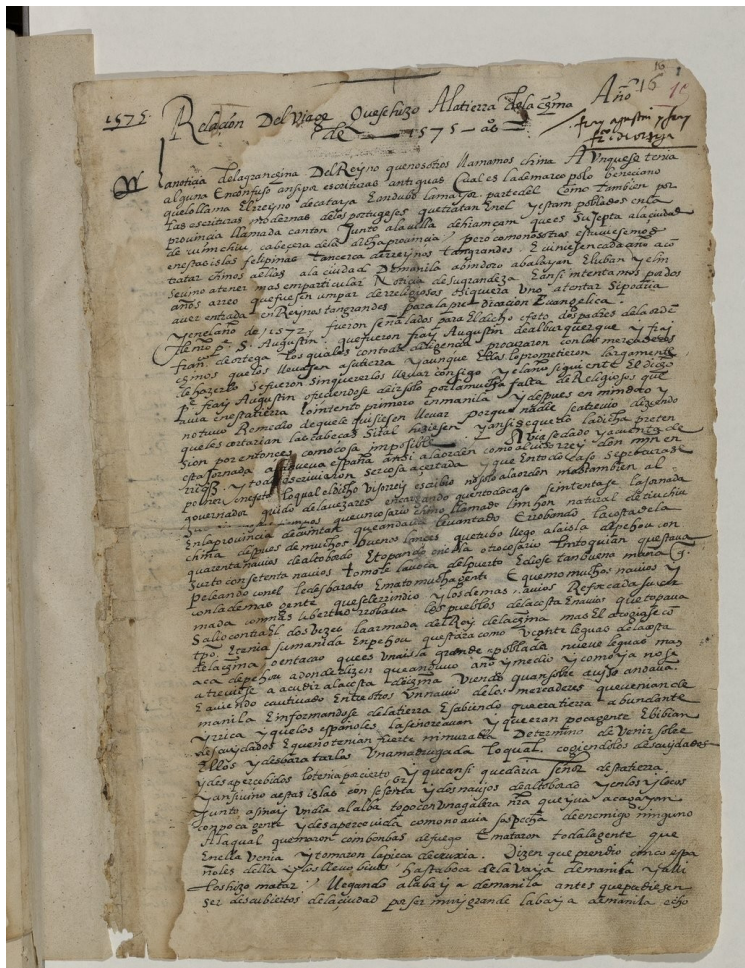 Año 16
1575. Relaçion Del Viage Que se hizo A la tierra de la china
de 1575 aos
fray agustin y fray
La noticia de la gran china Del Reyno que nosotros llamamos china Aunque se tenia
alguna En confuso ansi por escrituras antiguas Cual es la de marco polo beneciano
que lo llama El rreyno de catay a En dubo la mayor parte del Como Tambien por
las escrituras modernas de los portugeses que tratan En el y estan poblados en la
provincia llamada canton Junto a la villa de hiamcam que es Subjeta a la ciudad
de cumchiu cabeçera de la dicha provincia / pero como nosotros estuviesemos
en estas islas felipinas Tan cerca de rreynos tan grandes E viniesen cada año a con
tratar chinos a ellas a la ciudad De manila a bindoro abalayan Eluban y elin
se vino a tener mas em particular Noticia de su grandeza E ansi intentamos por dos
años arreo que fuesen un par de rreligiosos siquiera Uno a tentar Si podria
aver entrada en Reynos tan grandes para la predicacion Evangelica.
y en el año de 1572 / fueron señalados para El dicho efeto dos padres de la orden
de nro pe. S. Augustin. que fueron fray Augustin de alburquerque y fray
franco. de ortega los quales con toda diligencia procuraron con los mercaderes
chinos que los llevasen a su tierra y aunque Ellos lo prometieron largamente
de hazerlo se fueron Sin quererlos llevar consigo y el año siguiente El dicho
pe. fray Augustin ofreciendose de ir solo por la mucha falta de Religiosos que
avia en esta tierra lo intento primero en manila y despues en mindoro y
no tuvo Remedio de que le quisiesen llevar porque nadie se atrevio diziendo
que les cortarian las cabeças Si tal hiziesen y ansi se quedo la dicha preten
sion por entonces como cosa imposible Avia se dado ya cuenta de
esta Jornada a la nueva españa ansi a la orden como al visorrey don mn en
rriqz y todos escrivieron ser cosa açertada y que En todo caso se procurase
poner en efeto lo qual el dicho visorrey escribio no solo a la orden mas tambien al
governador guido de lavezares encargando que en todo caso se intentase la Jornada
que un cosario chino llamado limhon natural de tiuchiu
En la provincia de cuintan que andava levantado E rrobando la costa de la
china despues de muchos Buenos lances que tubo llego a la isla de pehou con
quarenta navios de alto bordo E topando en ella otro cosario vintoquian questava
Surto con setenta navios tomole la voca del puerto E diose tan buena maña q.
peleando con el le desbarato E mato mucha gente E quemo muchos navios y
con la demas gente que se le rrindio y los demas navios Reforçada su ar
mada con mas libertad rrobava los pueblos de la costa E navios que topava
Salio contra El dos vezes la armada del Rey de la china mas El
tpo. E tenia su manida En pehou questara como veynte leguas de la costa
de la china o en tacao ques una isla grande E poblada nueve leguas mas
aca de pehou a donde dizen que anduvo año y medio y como ya no se
atreviese a acudir a la costa de china Viendo quan sobre aviso andava.
E aviendo cautivado Entre otros Un navio de los mercaderes que venian de
manila E informandose de la tierra E sabiendo que era tierra abundante
y rrica y que los españoles la señoreavan y que eran poca gente E bibian
descuydados E que no tenian fuerte ni muralla Determino de venir sobre
Ellos y desbaratarlos una madrugada lo qual cogiendolos descuydados
y desapercebidos lo tenia por cierto y que ansi quedaria señor desta tierra.
y ansi vino a estas islas con sesenta y dos navios de alto bordo y en los ylocos
Junto a sinay Un dia al alba topo con una galera nra que yva a cagayan
con poca gente y desapercevida como no avia sospecha de enemigo ninguno
A la qual quemaron con bonbas de fuego E mataron toda la gente que
En ella venia y tomaron la pieça de cruxia. Dizen que prendio cinco espa
ñoles della y los llevo bivos hasta boca de la vaya de manila y alli
los hizo matar / llegando a la baya de manila antes que pudiesen
ser descubiertos de la ciudad por ser muy grande la baya de manila echo